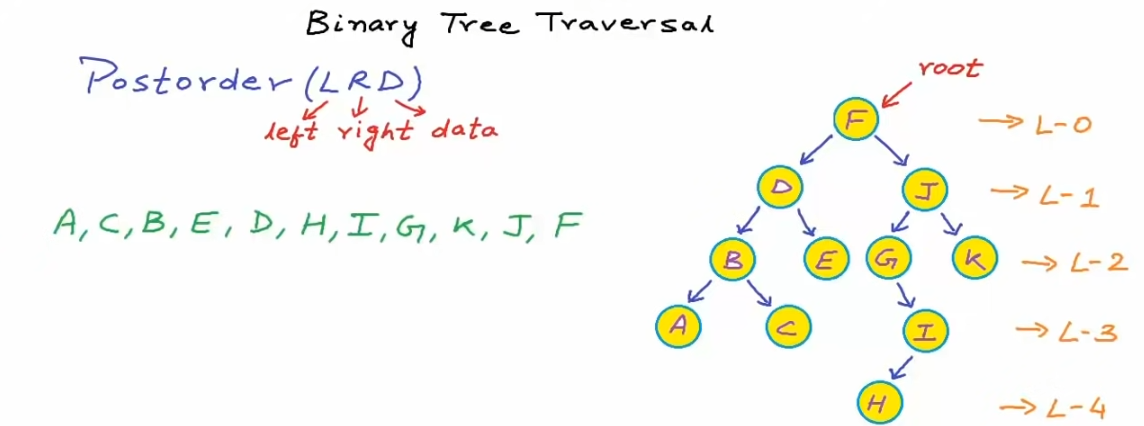 Binary Tree Traversal
Postorder (LRD)
left right data
A, C, B, E, D, H, I, G, K, J, F
root
F
→ L-0
D
J
→ L-1
B
E
G
K
→ L-2
A
C
I
→ L-3
H
→ L-4